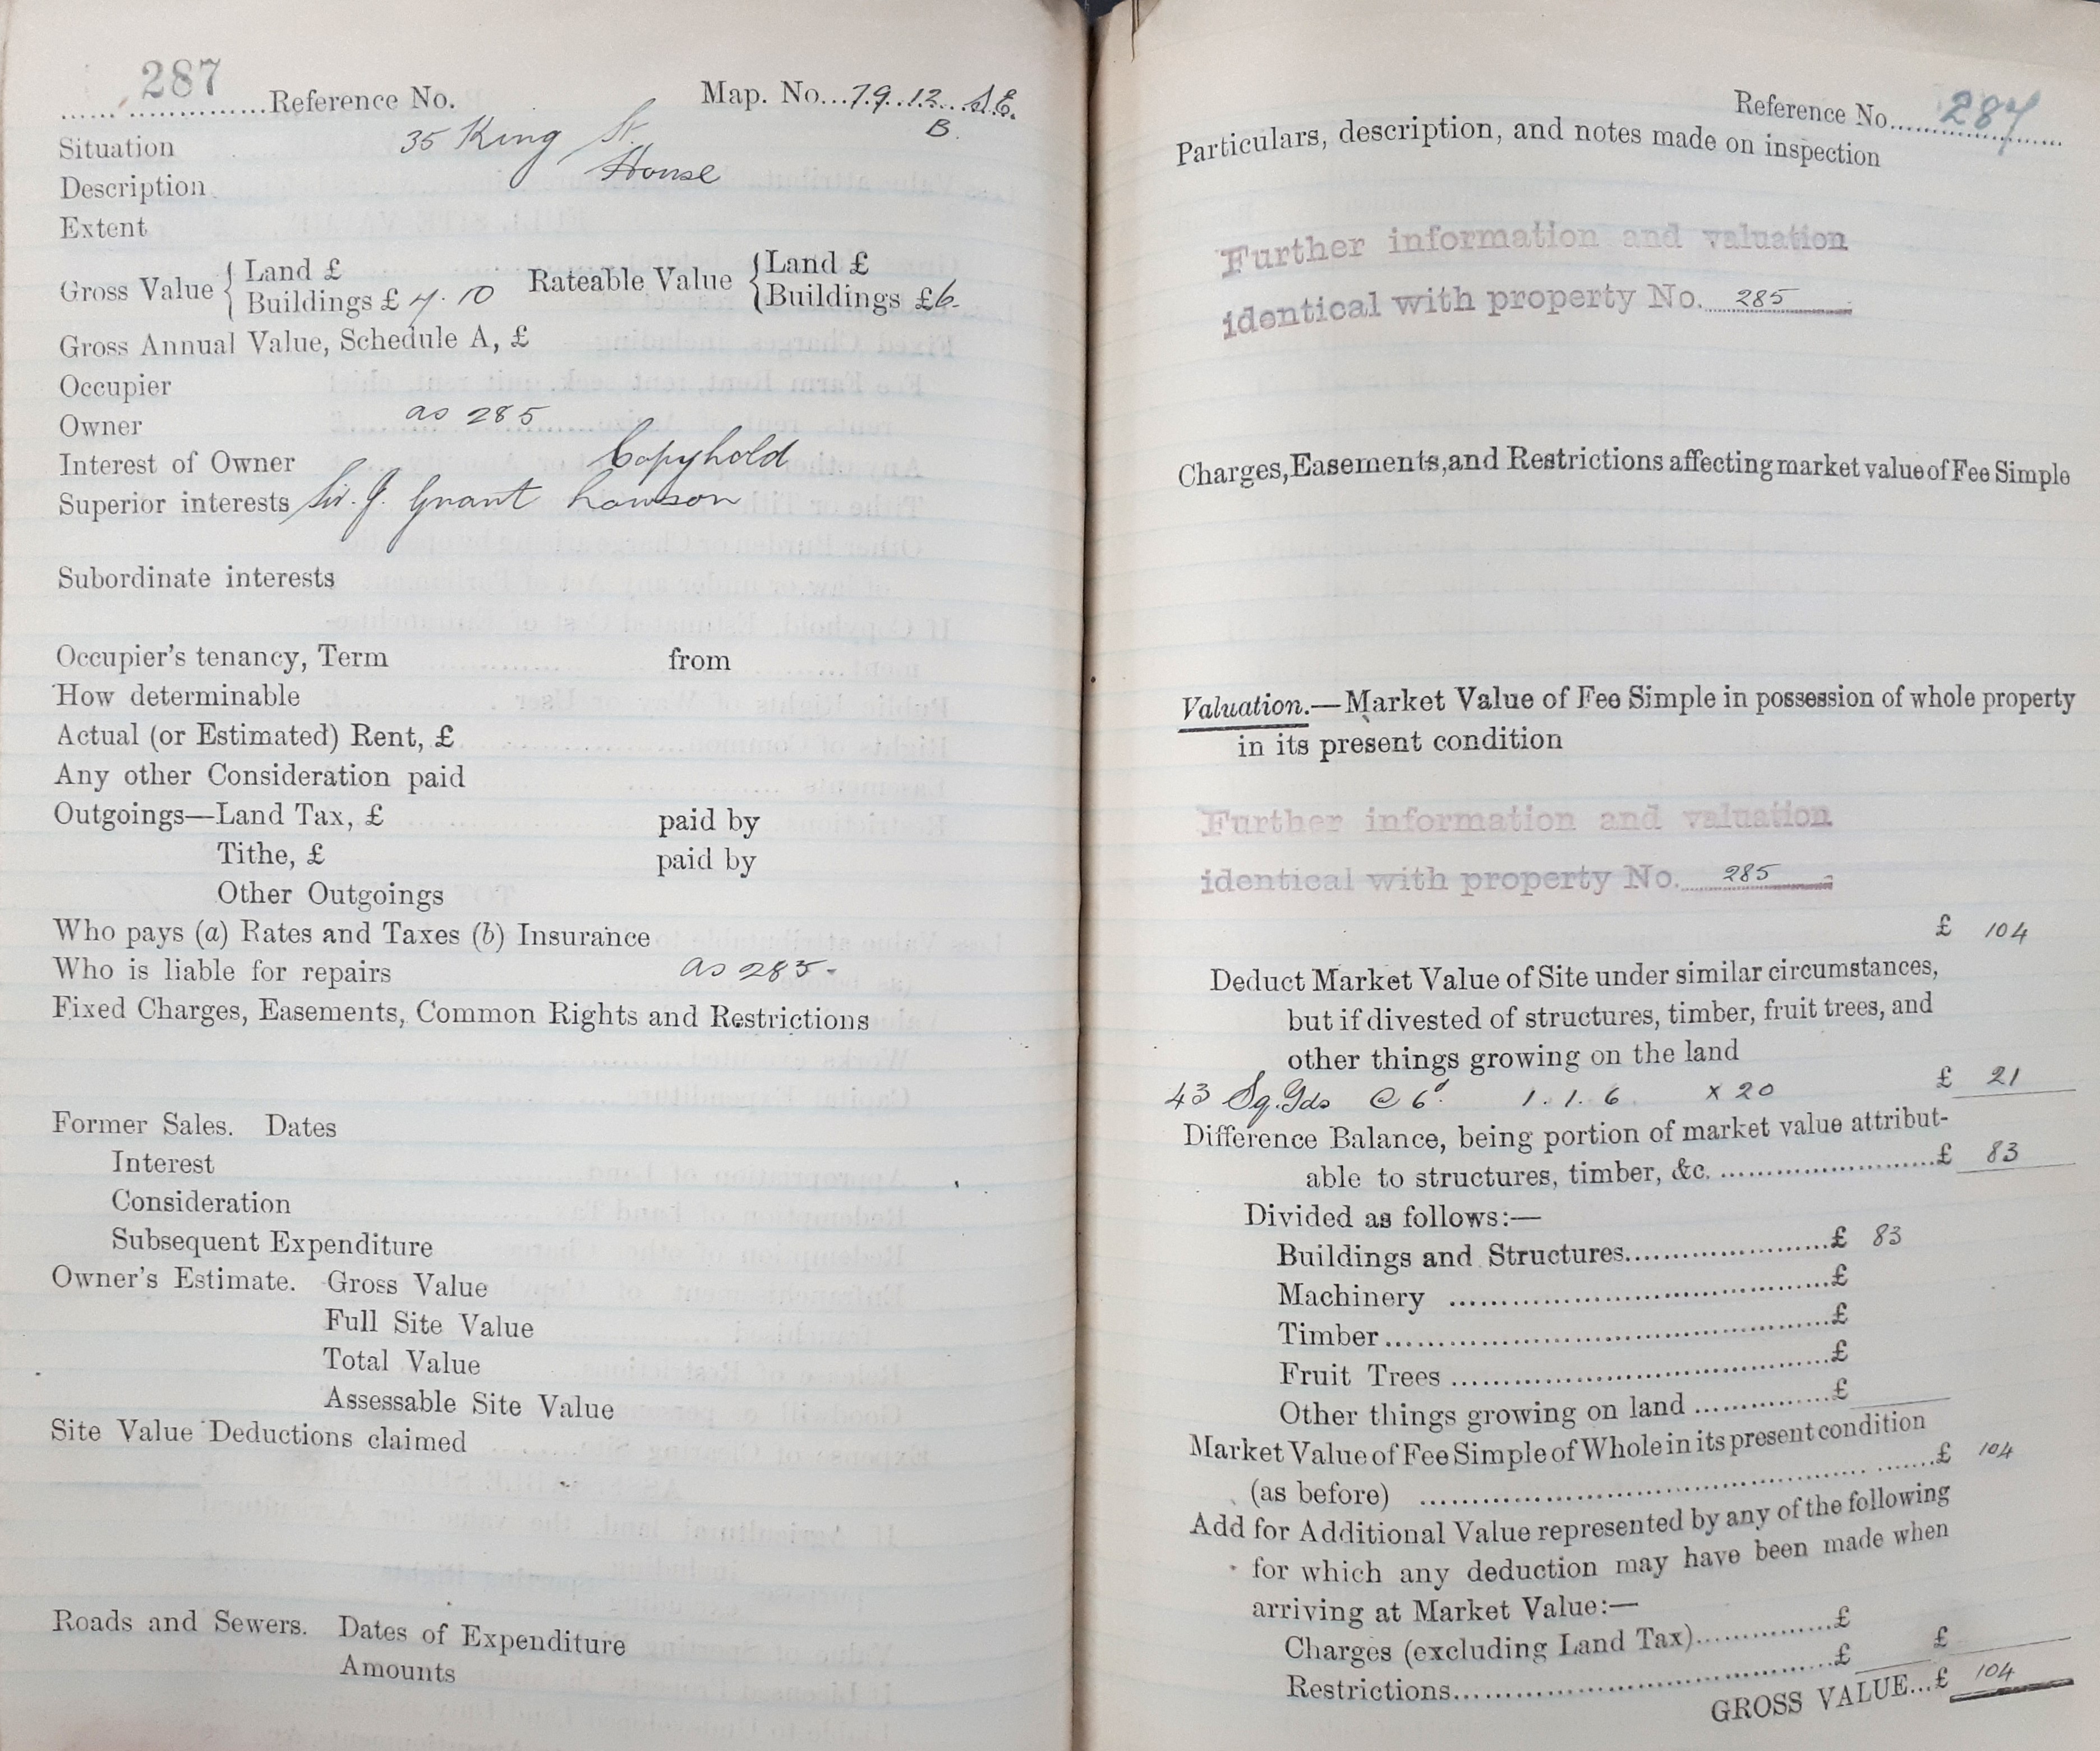 287
Reference No. Map. No. 79.12. S.E.
B.
Situation 35 King St.
Description House
Extent
Gross Value { Land £
Buildings £ 7.10
Rateable Value { Land £
Buildings £6.
Gross Annual Value, Schedule A, £
Occupier
Owner as 285
Interest of Owner Copyhold
Superior interests Sir. J. Grant Lawson
Subordinate interests
Occupier's tenancy, Term from
How determinable
Actual (or Estimated) Rent, £
Any other Consideration paid
Outgoings—Land Tax, £ paid by
Tithe, £ paid by
Other Outgoings
Who pays (a) Rates and Taxes (b) Insurance
Who is liable for repairs as 285.
Fixed Charges, Easements, Common Rights and Restrictions
Former Sales. Dates
Interest
Consideration
Subsequent Expenditure
Owner's Estimate. Gross Value
Full Site Value
Total Value
Assessable Site Value
Site Value Deductions claimed
Roads and Sewers. Dates of Expenditure
Amounts
Reference No. 287
Particulars, description, and notes made on inspection
Further information and valuation
identical with property No. 285
Charges, Easements, and Restrictions affecting market value of Fee Simple
Valuation.—Market Value of Fee Simple in possession of whole property
in its present condition
Further information and valuation
identical with property No. 285
£ 104
Deduct Market Value of Site under similar circumstances,
but if divested of structures, timber, fruit trees, and
other things growing on the land
43 Sq. Yds @ 6d. 1.1.6 x 20 £ 21
Difference Balance, being portion of market value attribut-
able to structures, timber, &c. £ 83
Divided as follows:—
Buildings and Structures £ 83
Machinery £
Timber £
Fruit Trees £
Other things growing on land £
Market Value of Fee Simple of Whole in its present condition
(as before) £ 104
Add for Additional Value represented by any of the following
for which any deduction may have been made when
arriving at Market Value:—
Charges (excluding Land Tax) £
Restrictions £ £
GROSS VALUE...£ 104